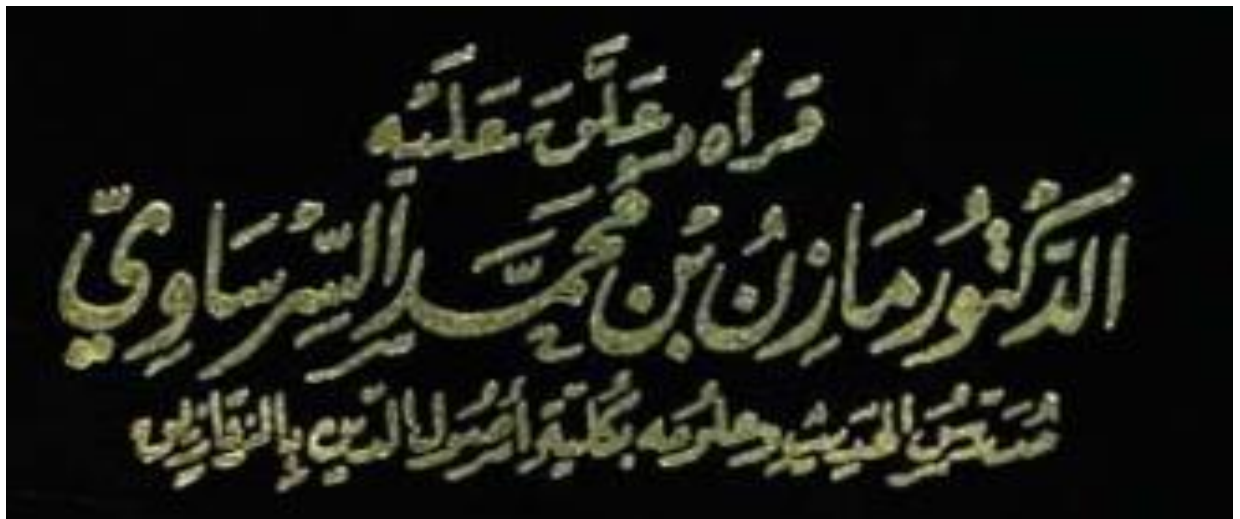 قرأه وعلَّق عَلَيْه
الدَّكتُور مَازِنُ بْن مُحَمَّد السِّرسَاوِيّ
مُدَرِّسُ الحَدِيثِ وعلومه بكُليَّةِ أصُول الدِّين بِالزقازيق